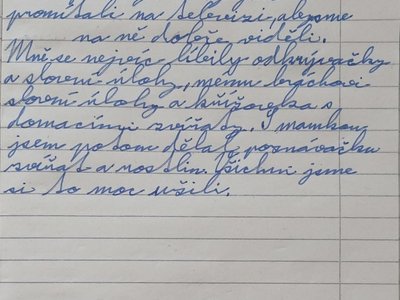 promítali na televizi, abysme
na ně dobře viděli.
Mně se nejvíc líbily odkrývačky
a slovní úlohy, mému bráchovi
slovní úlohy a křížovka s
domacími zvířaty. S mamkou
jsem potom dělal poznávačku
zvířat a rostlin. Všichni jsme
si to moc užili.